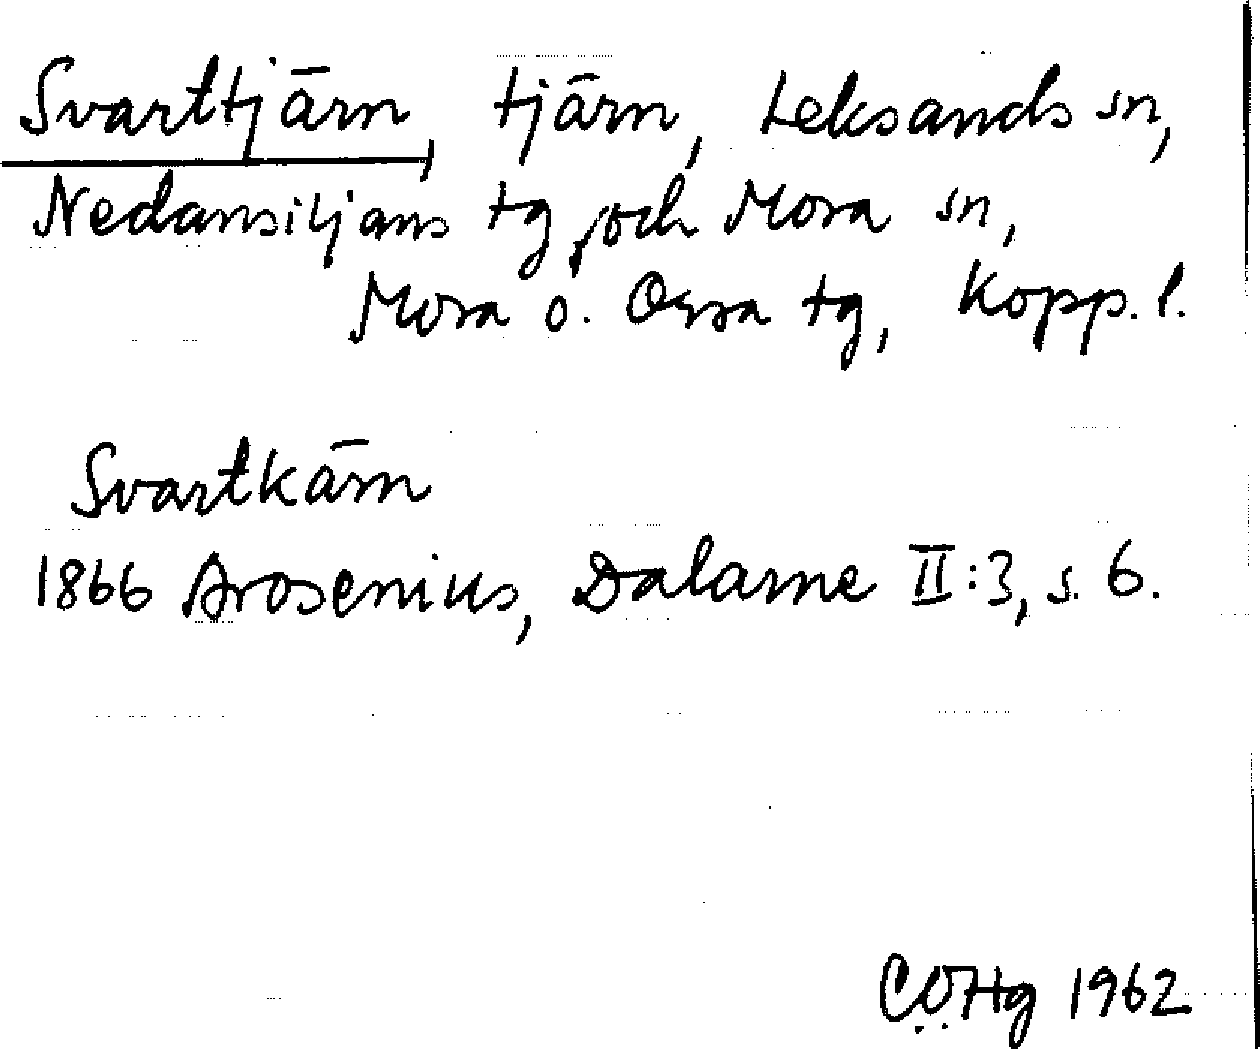 Svarttjärn, tjärn, Leksands sn,
Nedansiljans tg, och Mora sn,
Mora o. Orsa tg, Kopp. l.
Svartkärn
1866 Arosenius, Dalarne II:3, s. 6.
CÖHg 1962